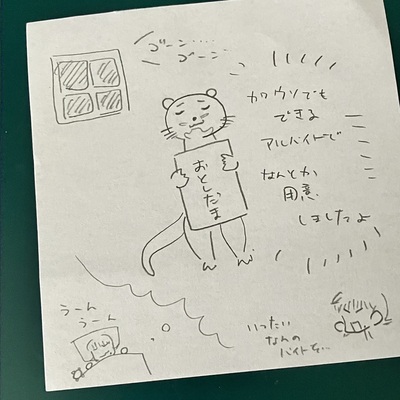 ゴーン……
ゴーン…
カワウソでも
できる
アルバイトで
なんとか
用意
しましたよ
おとしだま
うーん
うーん
いったい
なんの
バイトを…